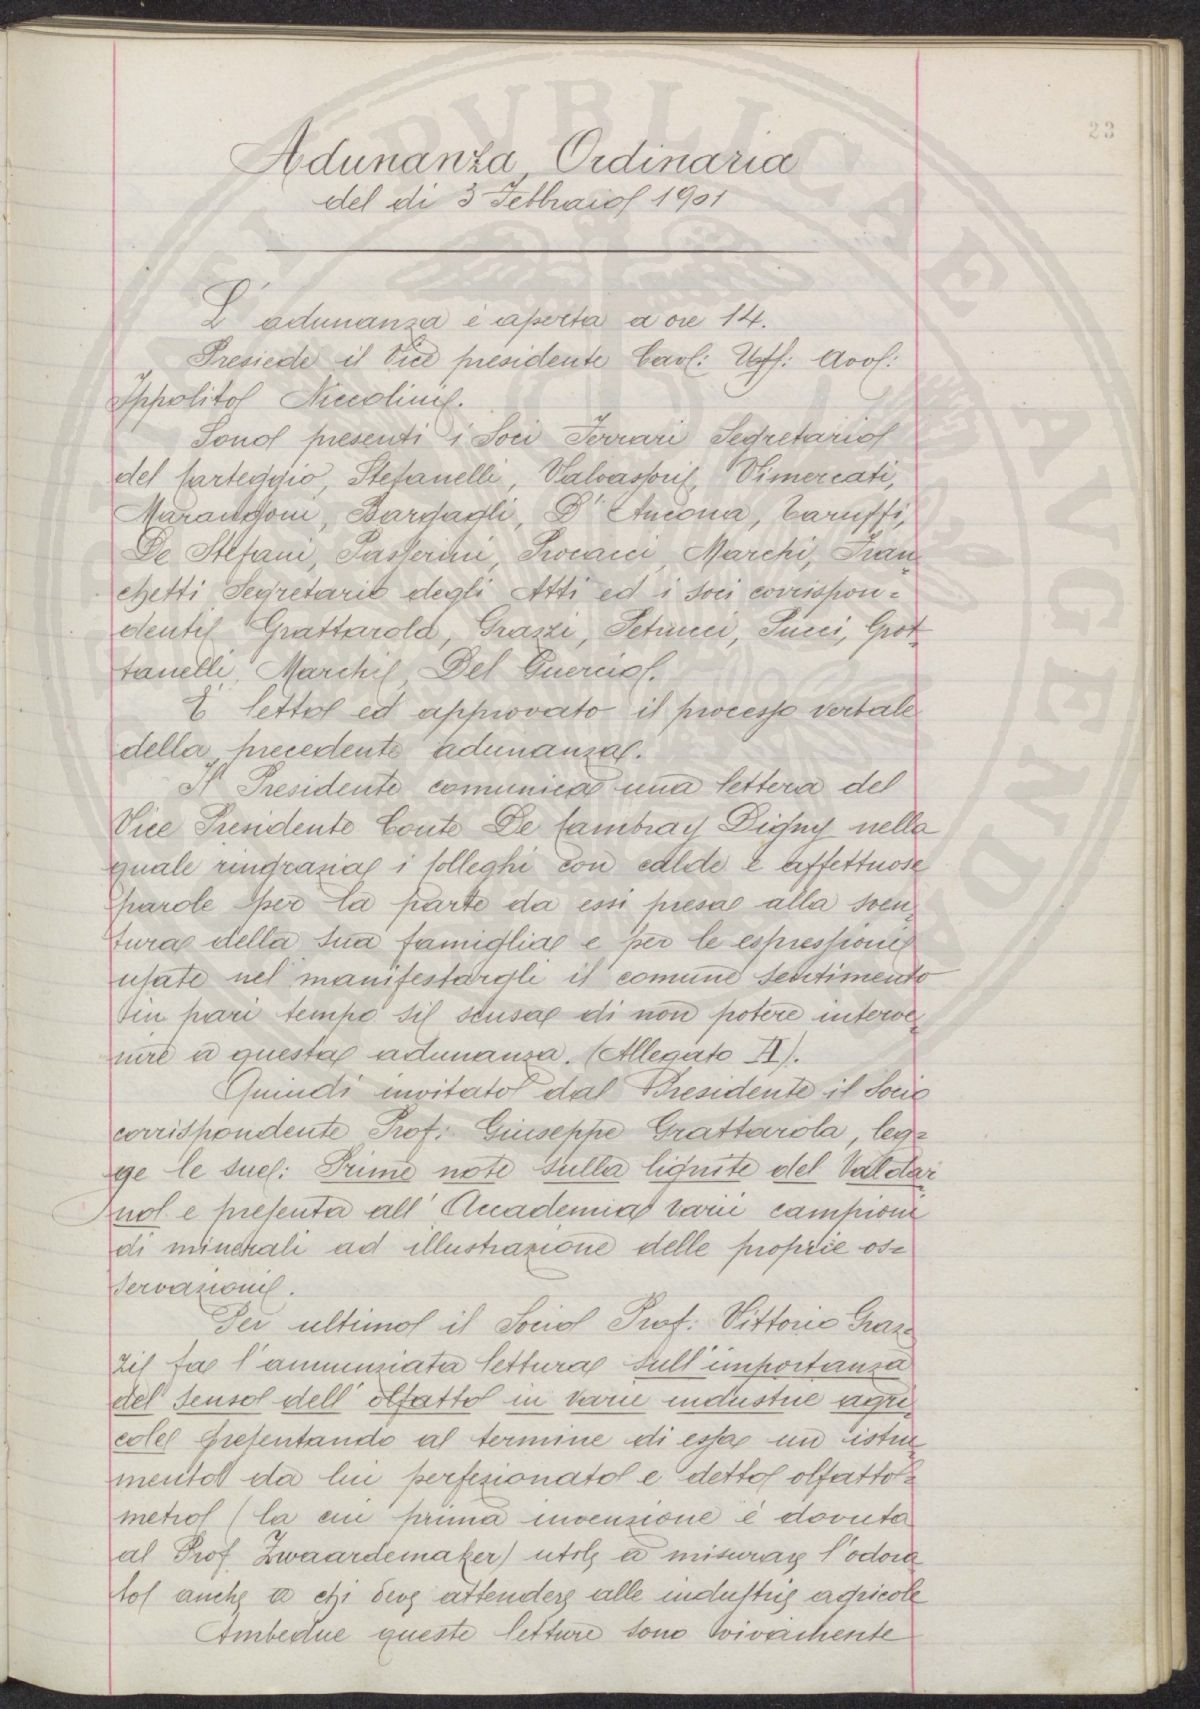 23
Adunanza Ordinaria
del di 3 Febbraio 1901
L'adunanza è aperta a ore 14.
Presiede il Vice presidente Cav: Uff: Avv:
Ippolito Niccolini.
Sono presenti i Soci Ferrari Segretario
del Carteggio, Stefanelli, Valvassori, Vimercati,
Marangoni, Bargagli, D'Ancona, Caruffi,
De Stefani, Passerini, Procacci, Marchi, Fran-
chetti Segretario degli Atti ed i soci corrispon=
denti Grattarola, Grazzi, Petrucci, Pucci, Grot-
tanelli, Marchi, Del Guercio.
È letto ed approvato il processo verbale
della precedente adunanza.
Il Presidente comunica una lettera del
Vice Presidente Conte De Cambray Digny nella
quale ringrazia i Colleghi con calde e affettuose
parole per la parte da essi presa alla sven-
tura della sua famiglia e per le espressioni
usate nel manifestargli il comune sentimento
in pari tempo si scusa di non potere interve-
nire a questa adunanza. (Allegato A).
Quindi invitato dal Presidente il Socio
corrispondente Prof: Giuseppe Grattarola, leg=
ge le sue: Prime note sulla lignite del Valdar-
no e presenta all'Accademia varii campioni
di minerali ad illustrazione delle proprie os=
servazioni.
Per ultimo il Socio Prof: Vittorio Graz=
zi fa l'annunziata lettura sull'importanza
del senso dell'olfatto in varie industrie agri-
cole presentando al termine di essa un istru-
mento da lui perfezionato e detto olfatto=
metro (la cui prima invenzione è dovuta
al Prof. Zwaardemaker) utile a misurare l'odora
to anche a chi deve attendere alle industrie agricole
Ambedue queste letture sono vivamente